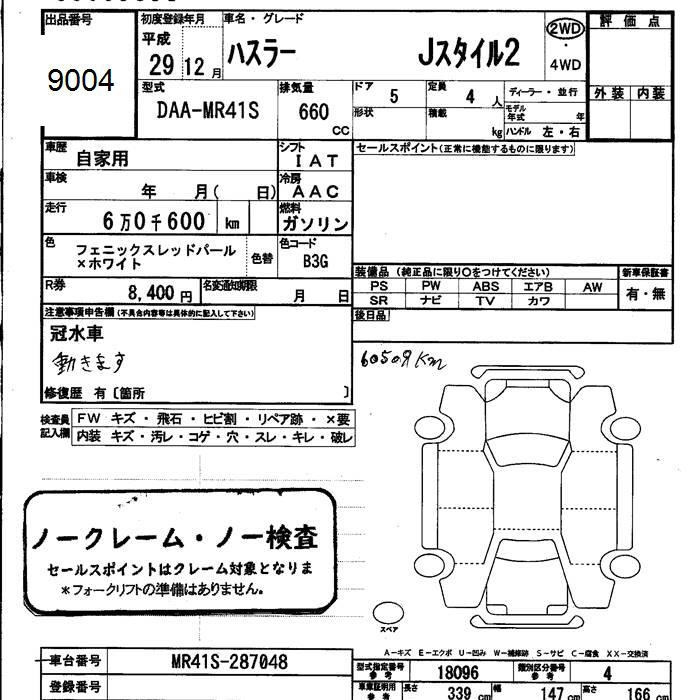 出品番号
9004
初度登録年月
平成
29 12月
車名・グレード
ハスラー Jスタイル2
2WD
・
4WD
評価点
外装 内装
型式
DAA-MR41S
排気量
660
CC
ドア 5
定員 4人
形状
積載 kg
ディーラー・並行
モデル年式 年
ハンドル 左・右
車歴 自家用
シフト
IAT
セールスポイント(正常に機能するものに限ります)
車検 年 月( 日)
冷房
AAC
走行 6万0千600 km
燃料
ガソリン
色 フェニックスレッドパール
×ホワイト
色替
色コード
B3G
R券 8,400円
名変通知期限 月 日
装備品(純正品に限り〇をつけてください)
PS PW ABS エアB AW
SR ナビ TV カワ
新車保証書
有・無
後日品
注意事項申告欄(不具合内容等は具体的に記入して下さい)
冠水車
動きます
修復歴 有〔箇所 〕
60509Km
検査員
記入欄
FW キズ・飛石・ヒビ割・リペア跡・×要
内装 キズ・汚レ・コゲ・穴・スレ・キレ・破レ
ノークレーム・ノー検査
セールスポイントはクレーム対象となりま
*フォークリフトの準備はありません。
スペア
A-キズ E-エクボ U-凹み W-補修跡 S-サビ C-腐食 XX-交換済
車台番号 MR41S-287048
登録番号
型式指定番号
参考
18096
類別区分番号
参考
4
車庫証明用
参考
長さ 339cm 幅 147cm 高さ 166cm